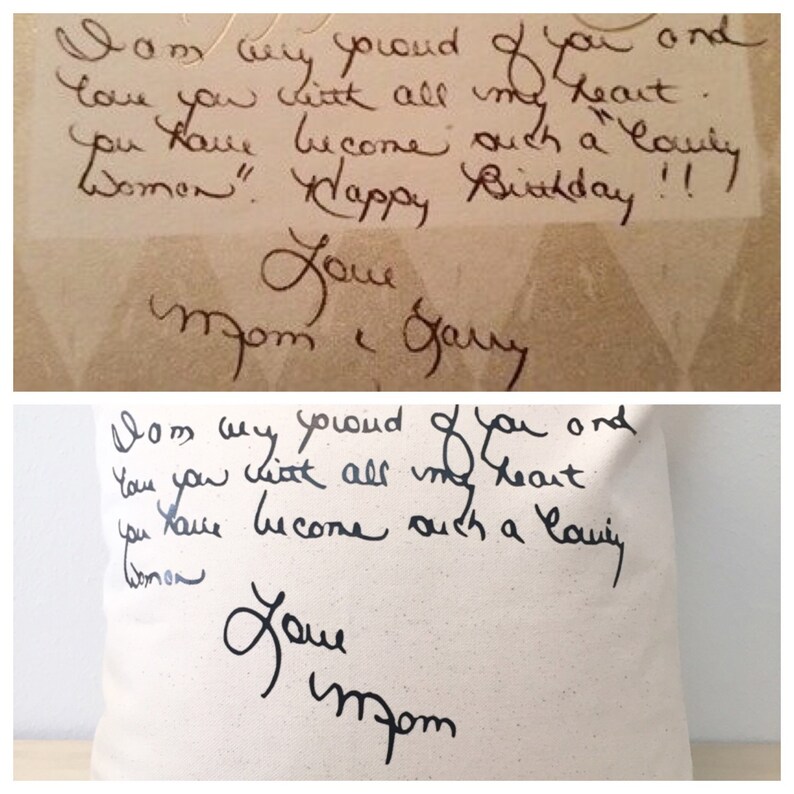 I am very proud of you and
love you with all my heart.
you have become such a "lovely
Woman". Happy Birthday!!
Love
Mom & Larry
I am very proud of you and
love you with all my heart
you have become such a lovely
Woman
Love
Mom